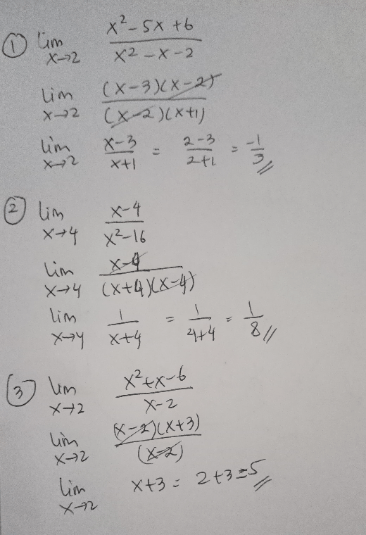 ① lim x→2 (x²-5x+6)/(x²-x-2)
lim x→2 ((x-3)(x-2))/((x-2)(x+1))
lim x→2 (x-3)/(x+1) = (2-3)/(2+1) = -1/3 //
② lim x→4 (x-4)/(x²-16)
lim x→4 (x-4)/((x+4)(x-4))
lim x→4 1/(x+4) = 1/(4+4) = 1/8 //
③ lim x→2 (x²+x-6)/(x-2)
lim x→2 ((x-2)(x+3))/(x-2)
lim x→2 x+3 = 2+3=5 //